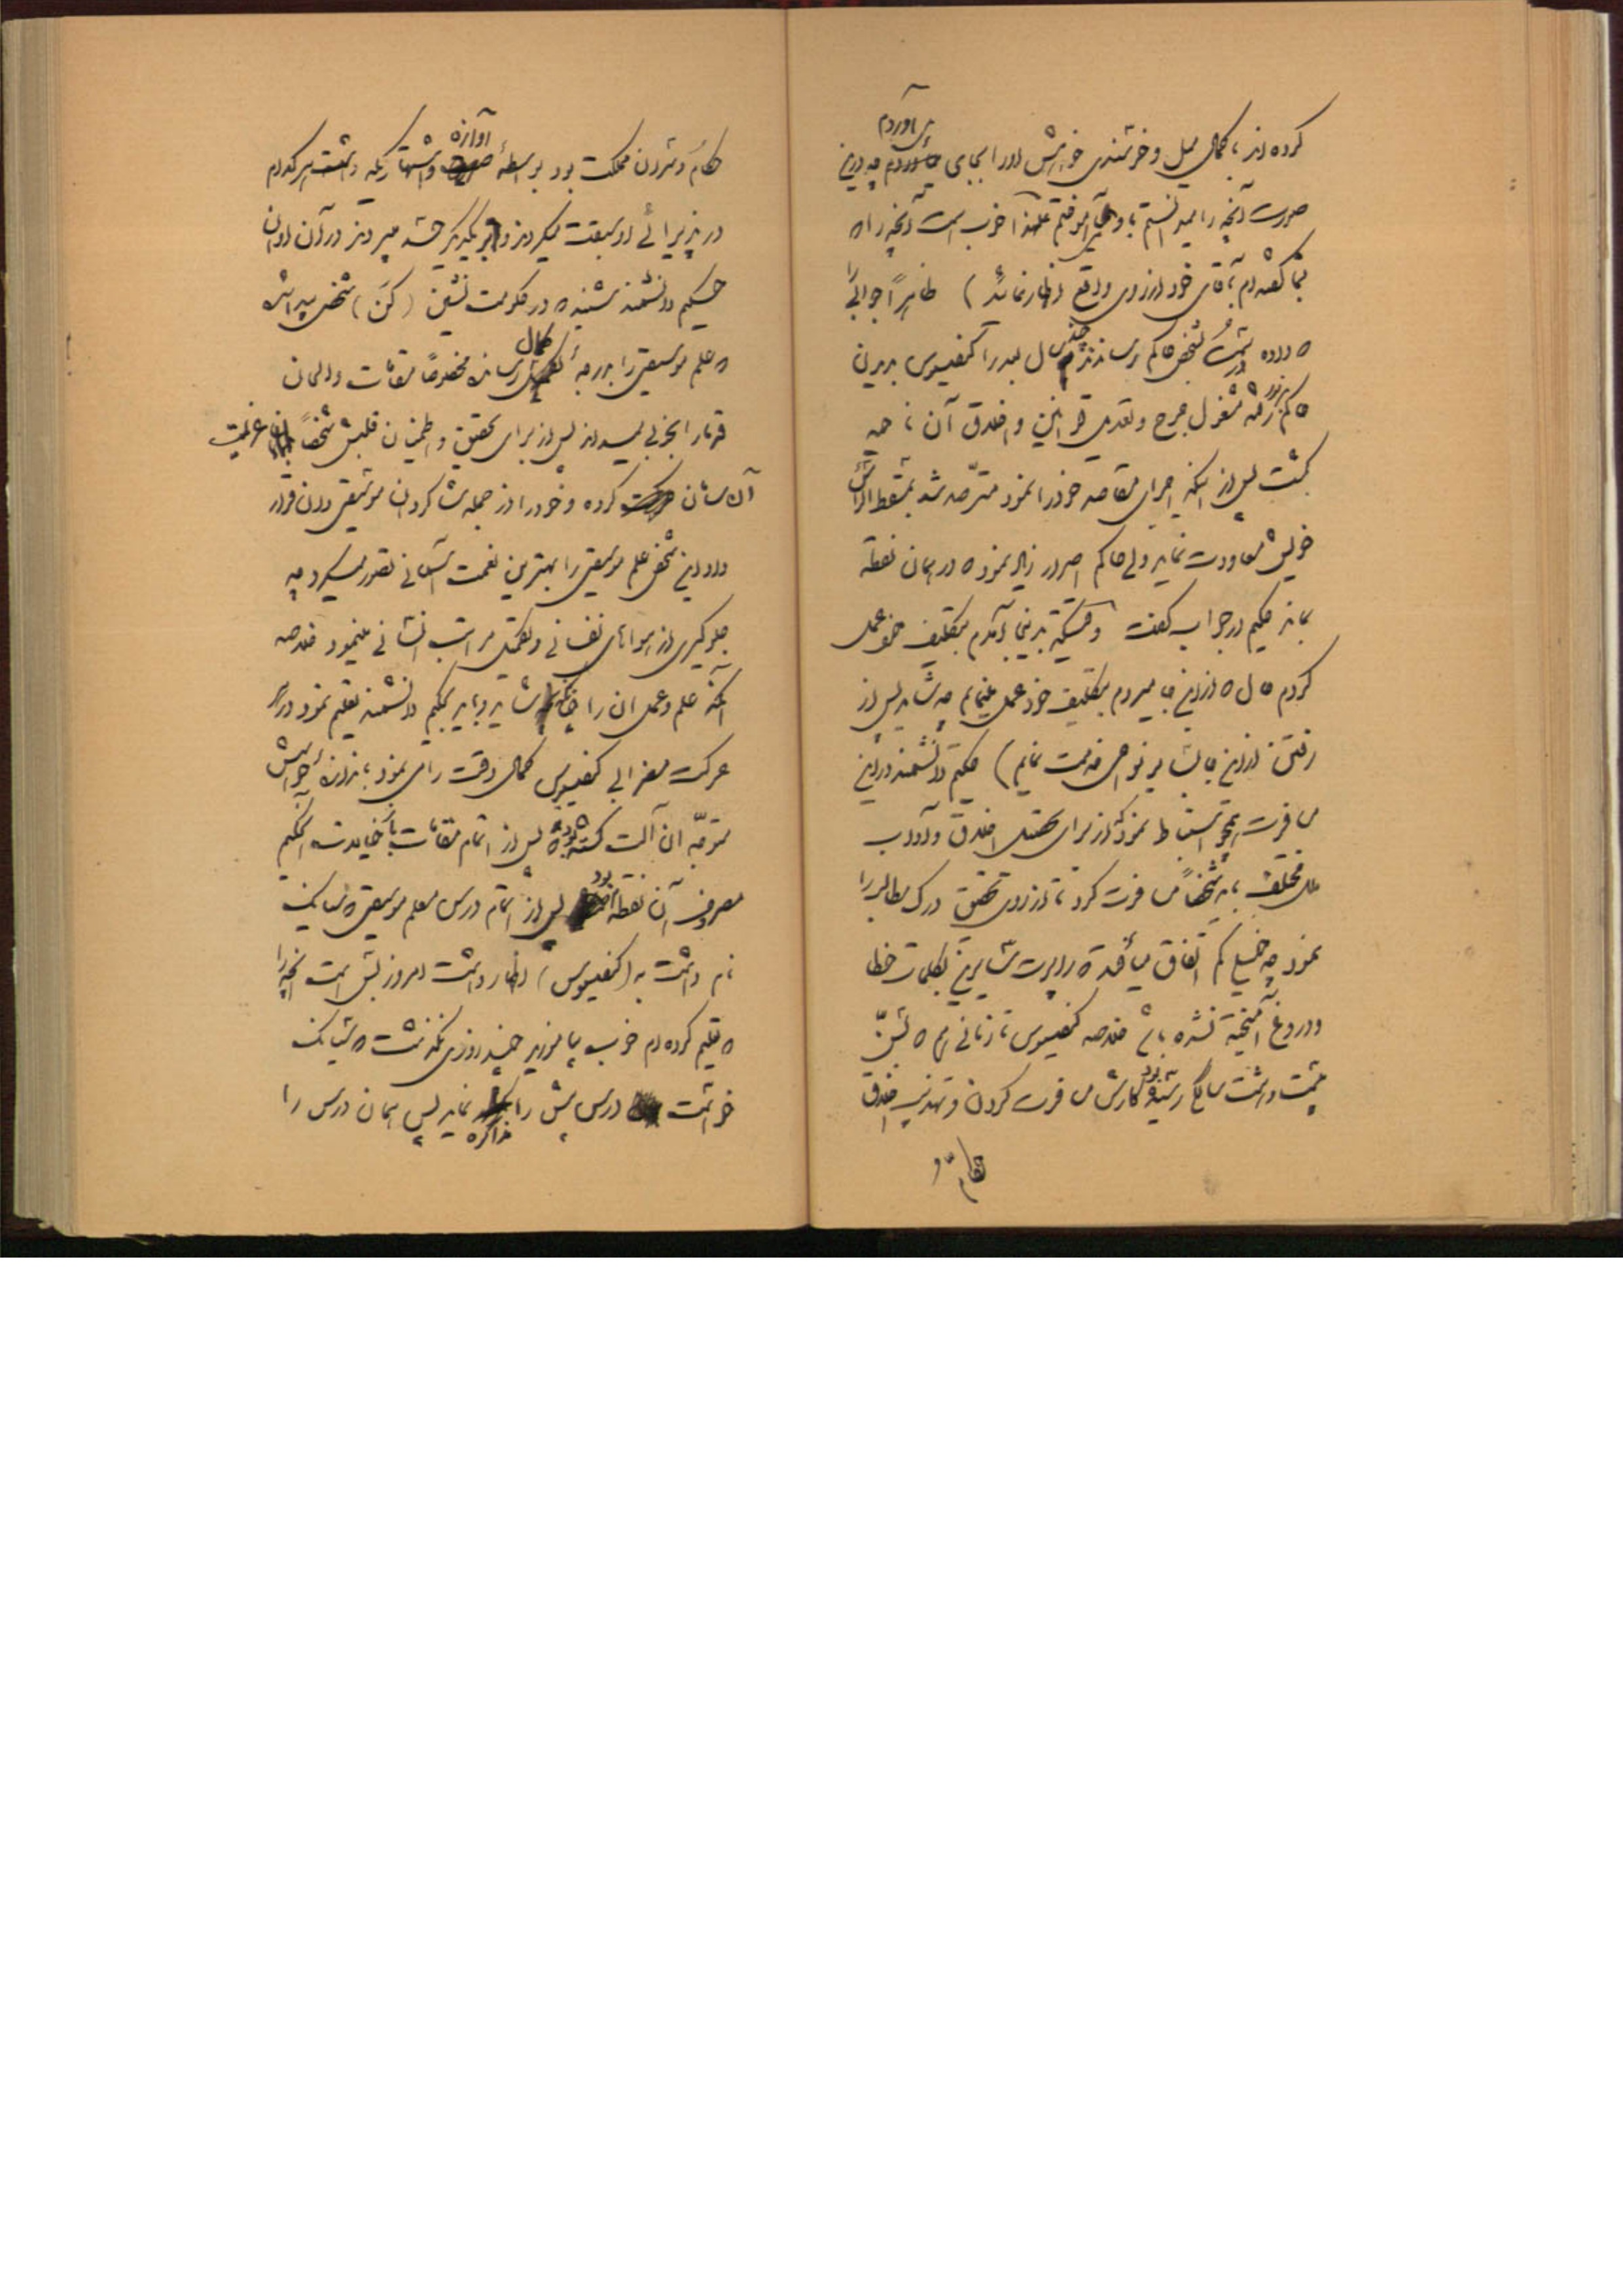 کرده اند با کمال میل و خرسندی خواهش او را بجای می‌آوردم چه در این
صورت آنچه را میدانستم باو می آموختم علیهذا خوب است آنچه را که
بشما گفته‌ام بآقای خود از روی واقع اظهار نمائید) ظاهراً جوابی را
که داده بشخص حاکم رساندند چندی سال بعد را کنفسیوس بدیدن
حاکم رفته مشغول جرح و تعدیل قوانین و اخلاق آن ناحیه
گشت پس از آنکه اجرای مقاصد خود را نمود مترصد شد بمسقط الرأس
خویش معاودت نماید ولی حاکم اصرار زیاد نمود که در همان نقطه
بماند حکیم در جواب گفت وقتیکه بدینجا آمدم بتکلیف خود عمل
کردم حال که از این جا میروم بتکلیف خود عمل مینمایم چه شاید پس از
رفتن از این جا بسایر نواحی خدمت نمایم) حکیم دانشمند در این
مسافرت استنباط نمود که از برای تحصیل اخلاق و آداب
ملل مختلف باید شخصاً مسافرت کرد تا از روی تحقیق درک مطالب را
نمود چه خیلی کم اتفاق میافتد که راپرت سایرین بکلمات خطا
و دروغ آمیخته نشده باشد خلاصه کنفسیوس تا زمانی هم که بسنّ
شصت و هشت سالگی رسیده بود کارش مسافرت کردن و تهذیب اخلاق
حکام و
حکام و مردان مملکت بود بواسطهٔ آوازه و اشتهاریکه داشت هر کدام
در پذیرائی او سبقت میکردند و بر یکدیگر میبردند در آن اوان
حکیم دانشمند شنید که در حکومت نشین (کن) شخصی پیدا شده
که علم موسیقی را بدرجهٔ کمال رسانده مخصوصاً مقامات و الحان
قدما را بخوبی میداند پس از برای تحقیق و اطمینان قلبش شخصاً عزیمت
آن سامان کرده و خود را از جمله شاگردان موسیقی دان قرار
داد این شخص علم موسیقی را بهترین نعمت آسمانی تصور میکرد چه
جلوگیری از هواهای نفسانی و تکمیل مراتب انسانی مینمود خلاصه
آنکه علم و عمل آن را چنانکه شاید و باید بحکیم دانشمند تعلیم نمود در هر
حرکت مضرابی کنفسیوس کمال دقت را می نمود باندازه حواسش
متوجه آن آلت گشته بود که پس از اتمام مقامات باخیالات آنحکیم
معروف آن نقطه بود پس از اتمام درس معلم موسیقی که سیانک
نام داشت به (کنفسیوس) اظهار داشت امروز بس است آنچه را
که تعلیم کرده‌ام خوب بیاموزید چند روزی نگذشت که سیانک
خواست درس پیش را مذاکره نماید پس همان درس را